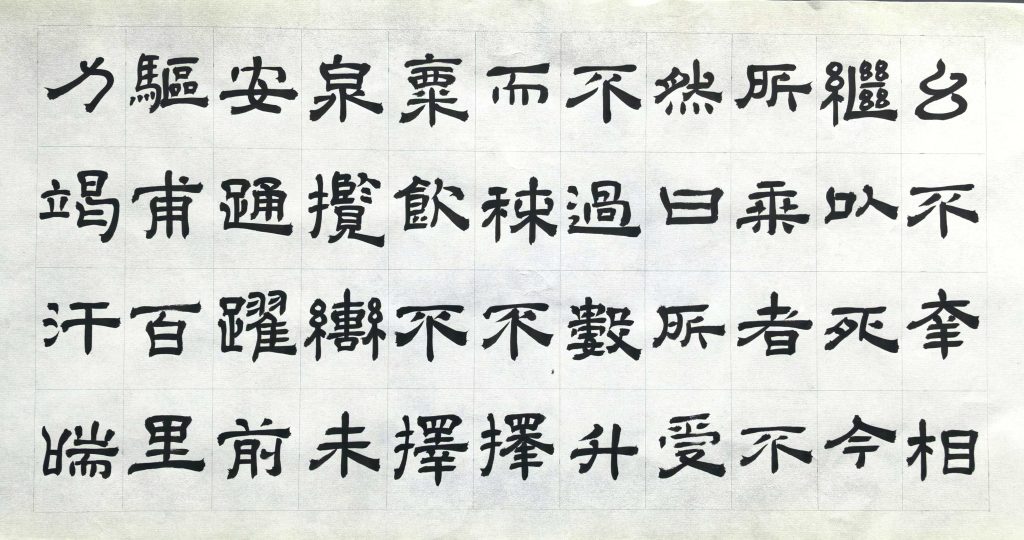 幺不幸相
繼以死今
所乘者不
然日所受
不過數升
而秣不擇
粟飲不擇
泉攬轡未
安踊躍前
驅甫百里
力竭汗喘